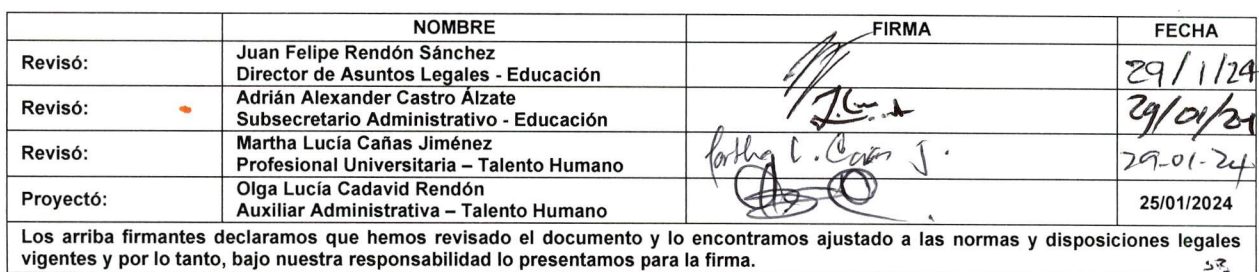 NOMBRE FIRMA FECHA
Revisó: Juan Felipe Rendón Sánchez 29/1/24
Director de Asuntos Legales - Educación
Revisó: Adrián Alexander Castro Álzate 29/01/24
Subsecretario Administrativo - Educación
Revisó: Martha Lucía Cañas Jiménez Martha C. Cañas J. 29-01-24
Profesional Universitaria – Talento Humano
Proyectó: Olga Lucía Cadavid Rendón 25/01/2024
Auxiliar Administrativa – Talento Humano
Los arriba firmantes declaramos que hemos revisado el documento y lo encontramos ajustado a las normas y disposiciones legales
vigentes y por lo tanto, bajo nuestra responsabilidad lo presentamos para la firma.